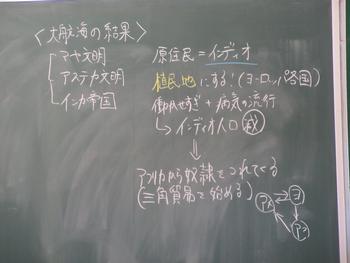 <大航海の結果>
マヤ文明
アステカ文明
インカ帝国
原住民=インディオ
植民地にする!(ヨーロッパ各国)
働かせすぎ+病気の流行
↳インディオ人口減
⇓
アフリカから奴隷をつれてくる
(三角貿易で始める)
アメ ヨ
アフ